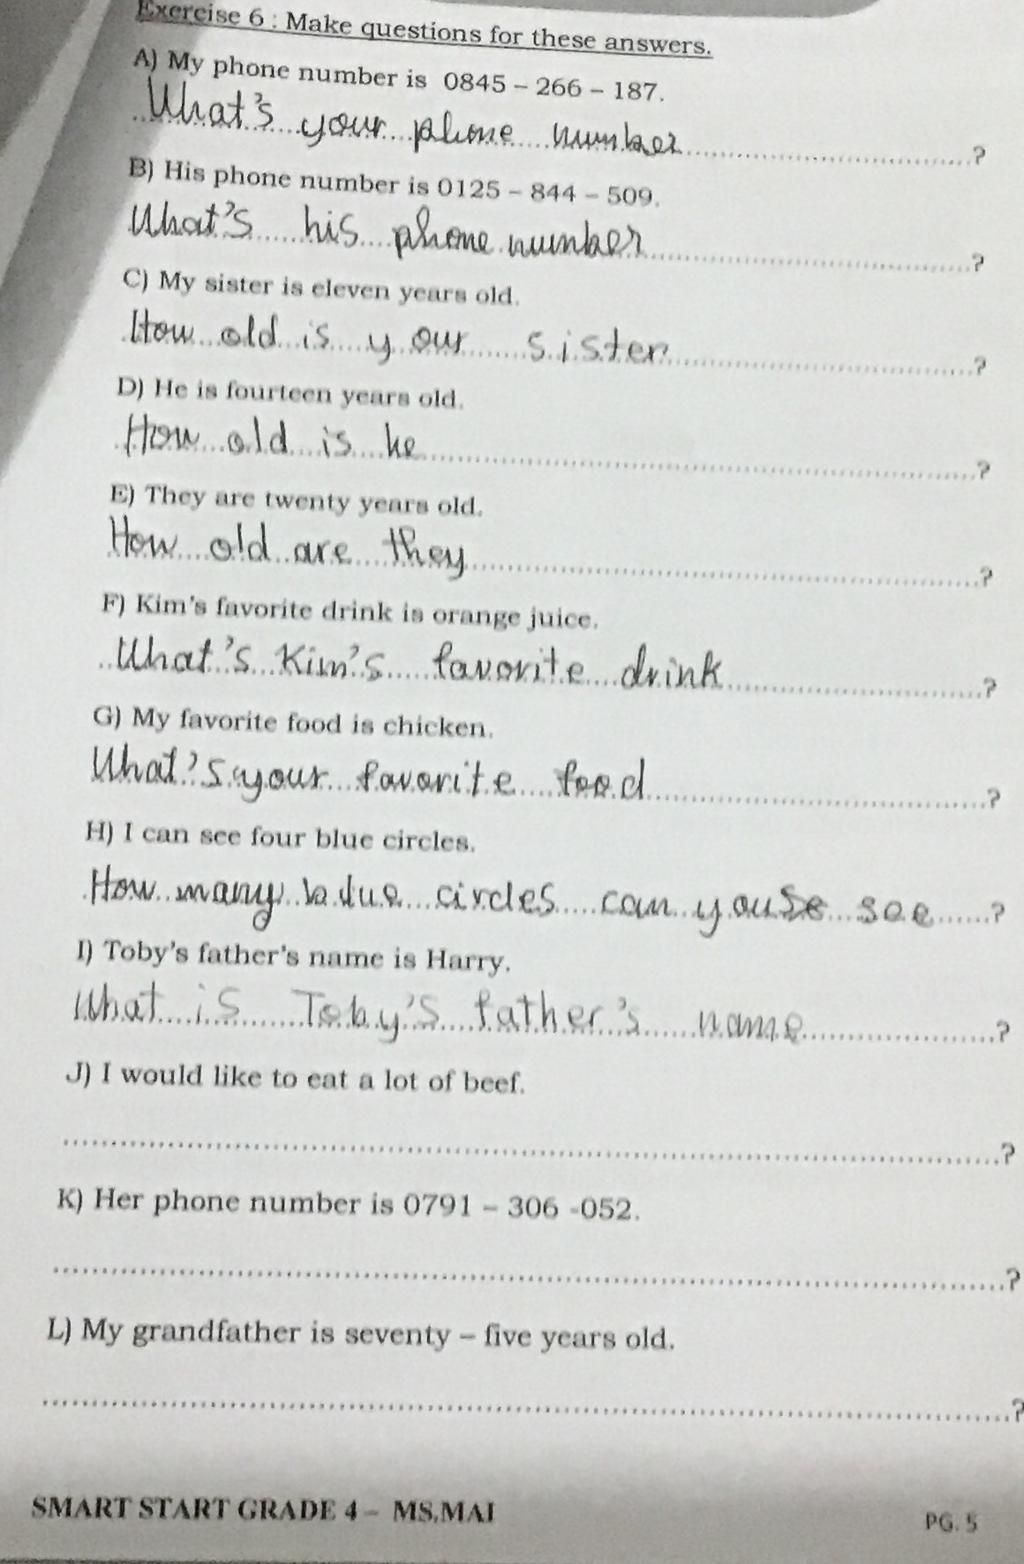 Exercise 6 : Make questions for these answers.
A) My phone number is 0845 – 266 – 187.
What's your phone number ?
B) His phone number is 0125 – 844 – 509.
What's his phone number ?
C) My sister is eleven years old.
How old is your sister ?
D) He is fourteen years old.
How old is he ?
E) They are twenty years old.
How old are they ?
F) Kim's favorite drink is orange juice.
What's Kim's favorite drink ?
G) My favorite food is chicken.
What's your favorite food ?
H) I can see four blue circles.
How many blue circles can you see ?
I) Toby's father's name is Harry.
What is Toby's father's name ?
J) I would like to eat a lot of beef.
?
K) Her phone number is 0791 – 306 -052.
?
L) My grandfather is seventy – five years old.
?
SMART START GRADE 4 – MS.MAI
PG. 5